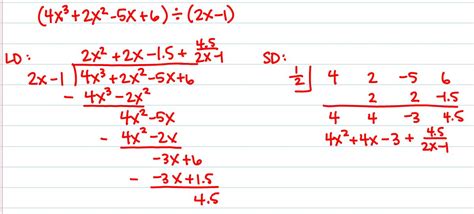 (4x³+2x²-5x+6)÷(2x-1)
LD:
2x²+2x-1.5+ 4.5/2x-1
2x-1 4x³+2x²-5x+6
- 4x³-2x²
4x²-5x
- 4x²-2x
-3x+6
- -3x+1.5
4.5
SD:
1/2 4 2 -5 6
2 2 -1.5
4 4 -3 4.5
4x²+4x-3+ 4.5/2x-1